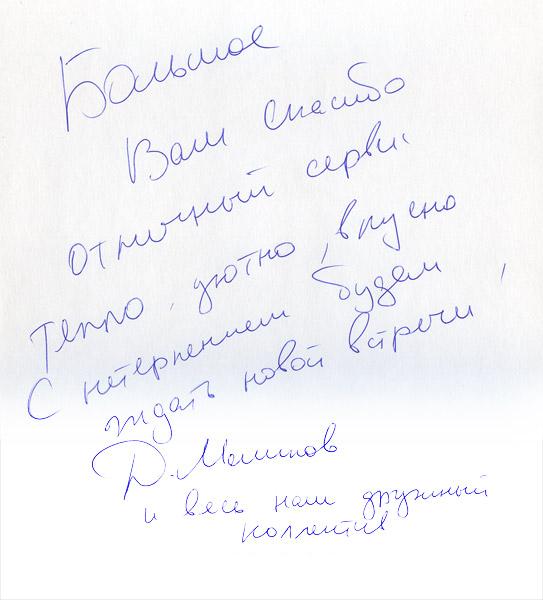 Большое
Вам спасибо
отличный серви
Тепло, уютно, вкусно
С нетерпением будем
ждать новой встречи,
Д. Маликов
и весь наш дружный
коллектив